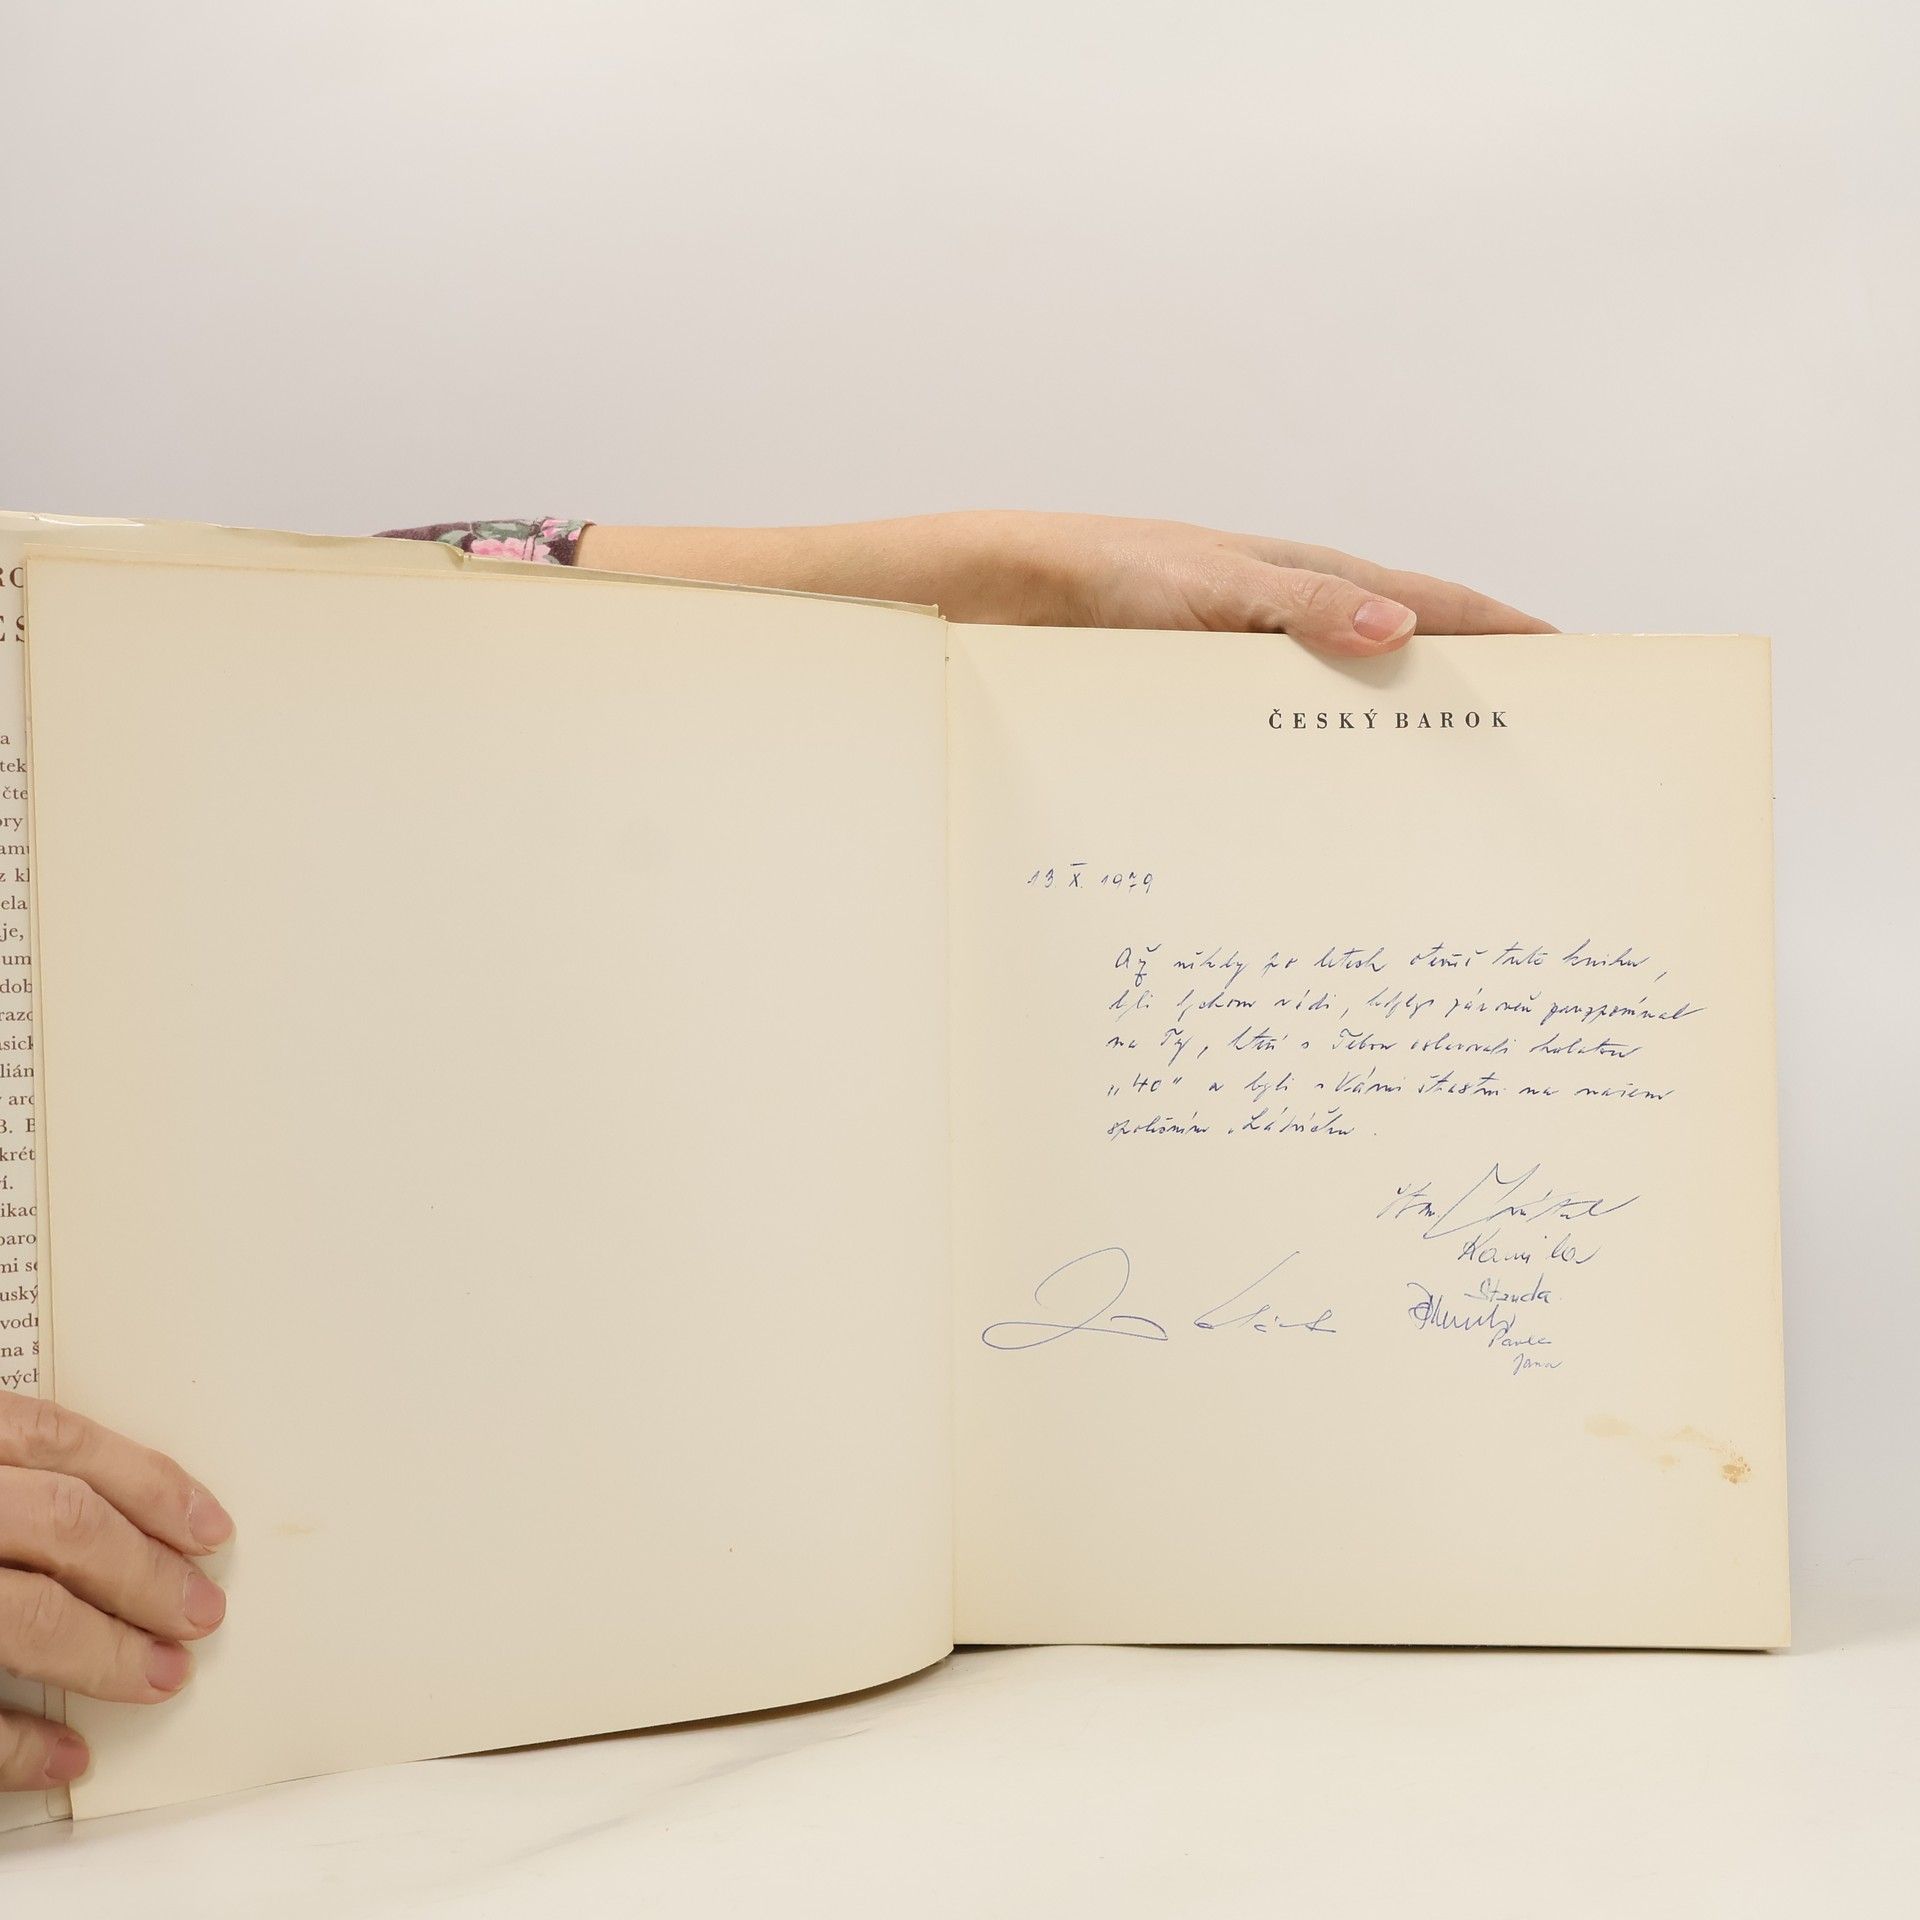 RO
ES
a
tek
čte
ory
amu
z kl
ela
je,
um
dob
razo
asick
lián
aro
B. B
krét
í.
ikac
baro
mi se
uský
vodn
na š
vých
ČESKÝ BAROK
13 X. 1979
Až někdy po letech otevřeš tuto knihu,
byli bychom rádi, kdybys zároveň zavzpomínal
na Ty, kteří s Tebou oslavovali kulatou
„40“ a byli s Vámi šťastni na našem
společném
Kamila
Standa
Pavla
Jana